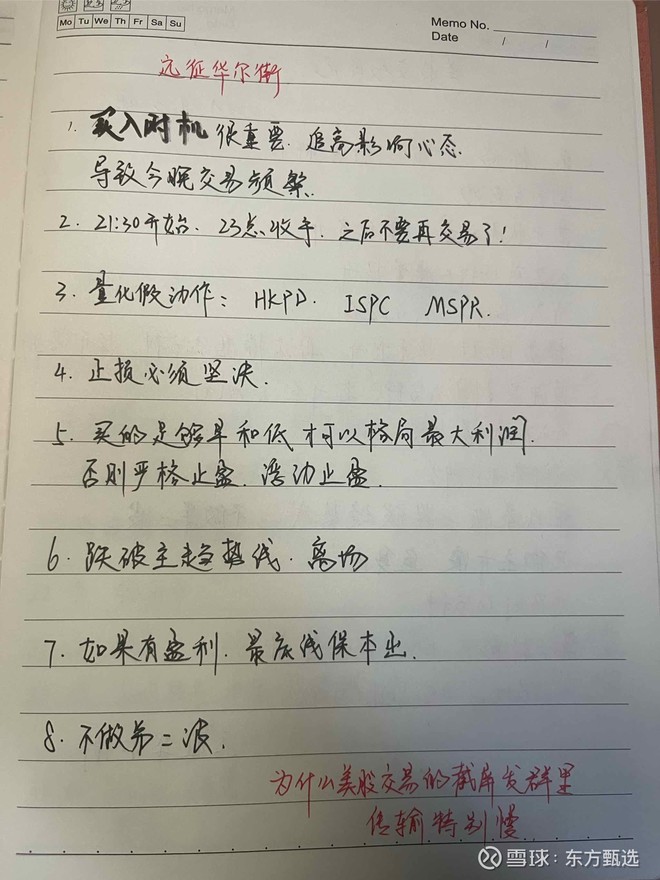 Mo Tu We Th Fr Sa Su
Memo No.
Date / /
远征华尔街
1. 买入时机很重要. 追高影响心态.
导致今晚交易频繁.
2. 21:30开始. 23点收手. 之后不要再交易了!
3. 量化假动作: HKPD. ISPC MSPR.
4. 止损必须坚决.
5. 买的足够早和低 才可以格局最大利润.
否则严格止盈. 浮动止盈.
6. 跌破主趋势线. 离场
7. 如果有盈利. 最底线保本出.
8. 不做第二波.
为什么美股交易的截屏发群里
传输特别慢
雪球:东方甄选